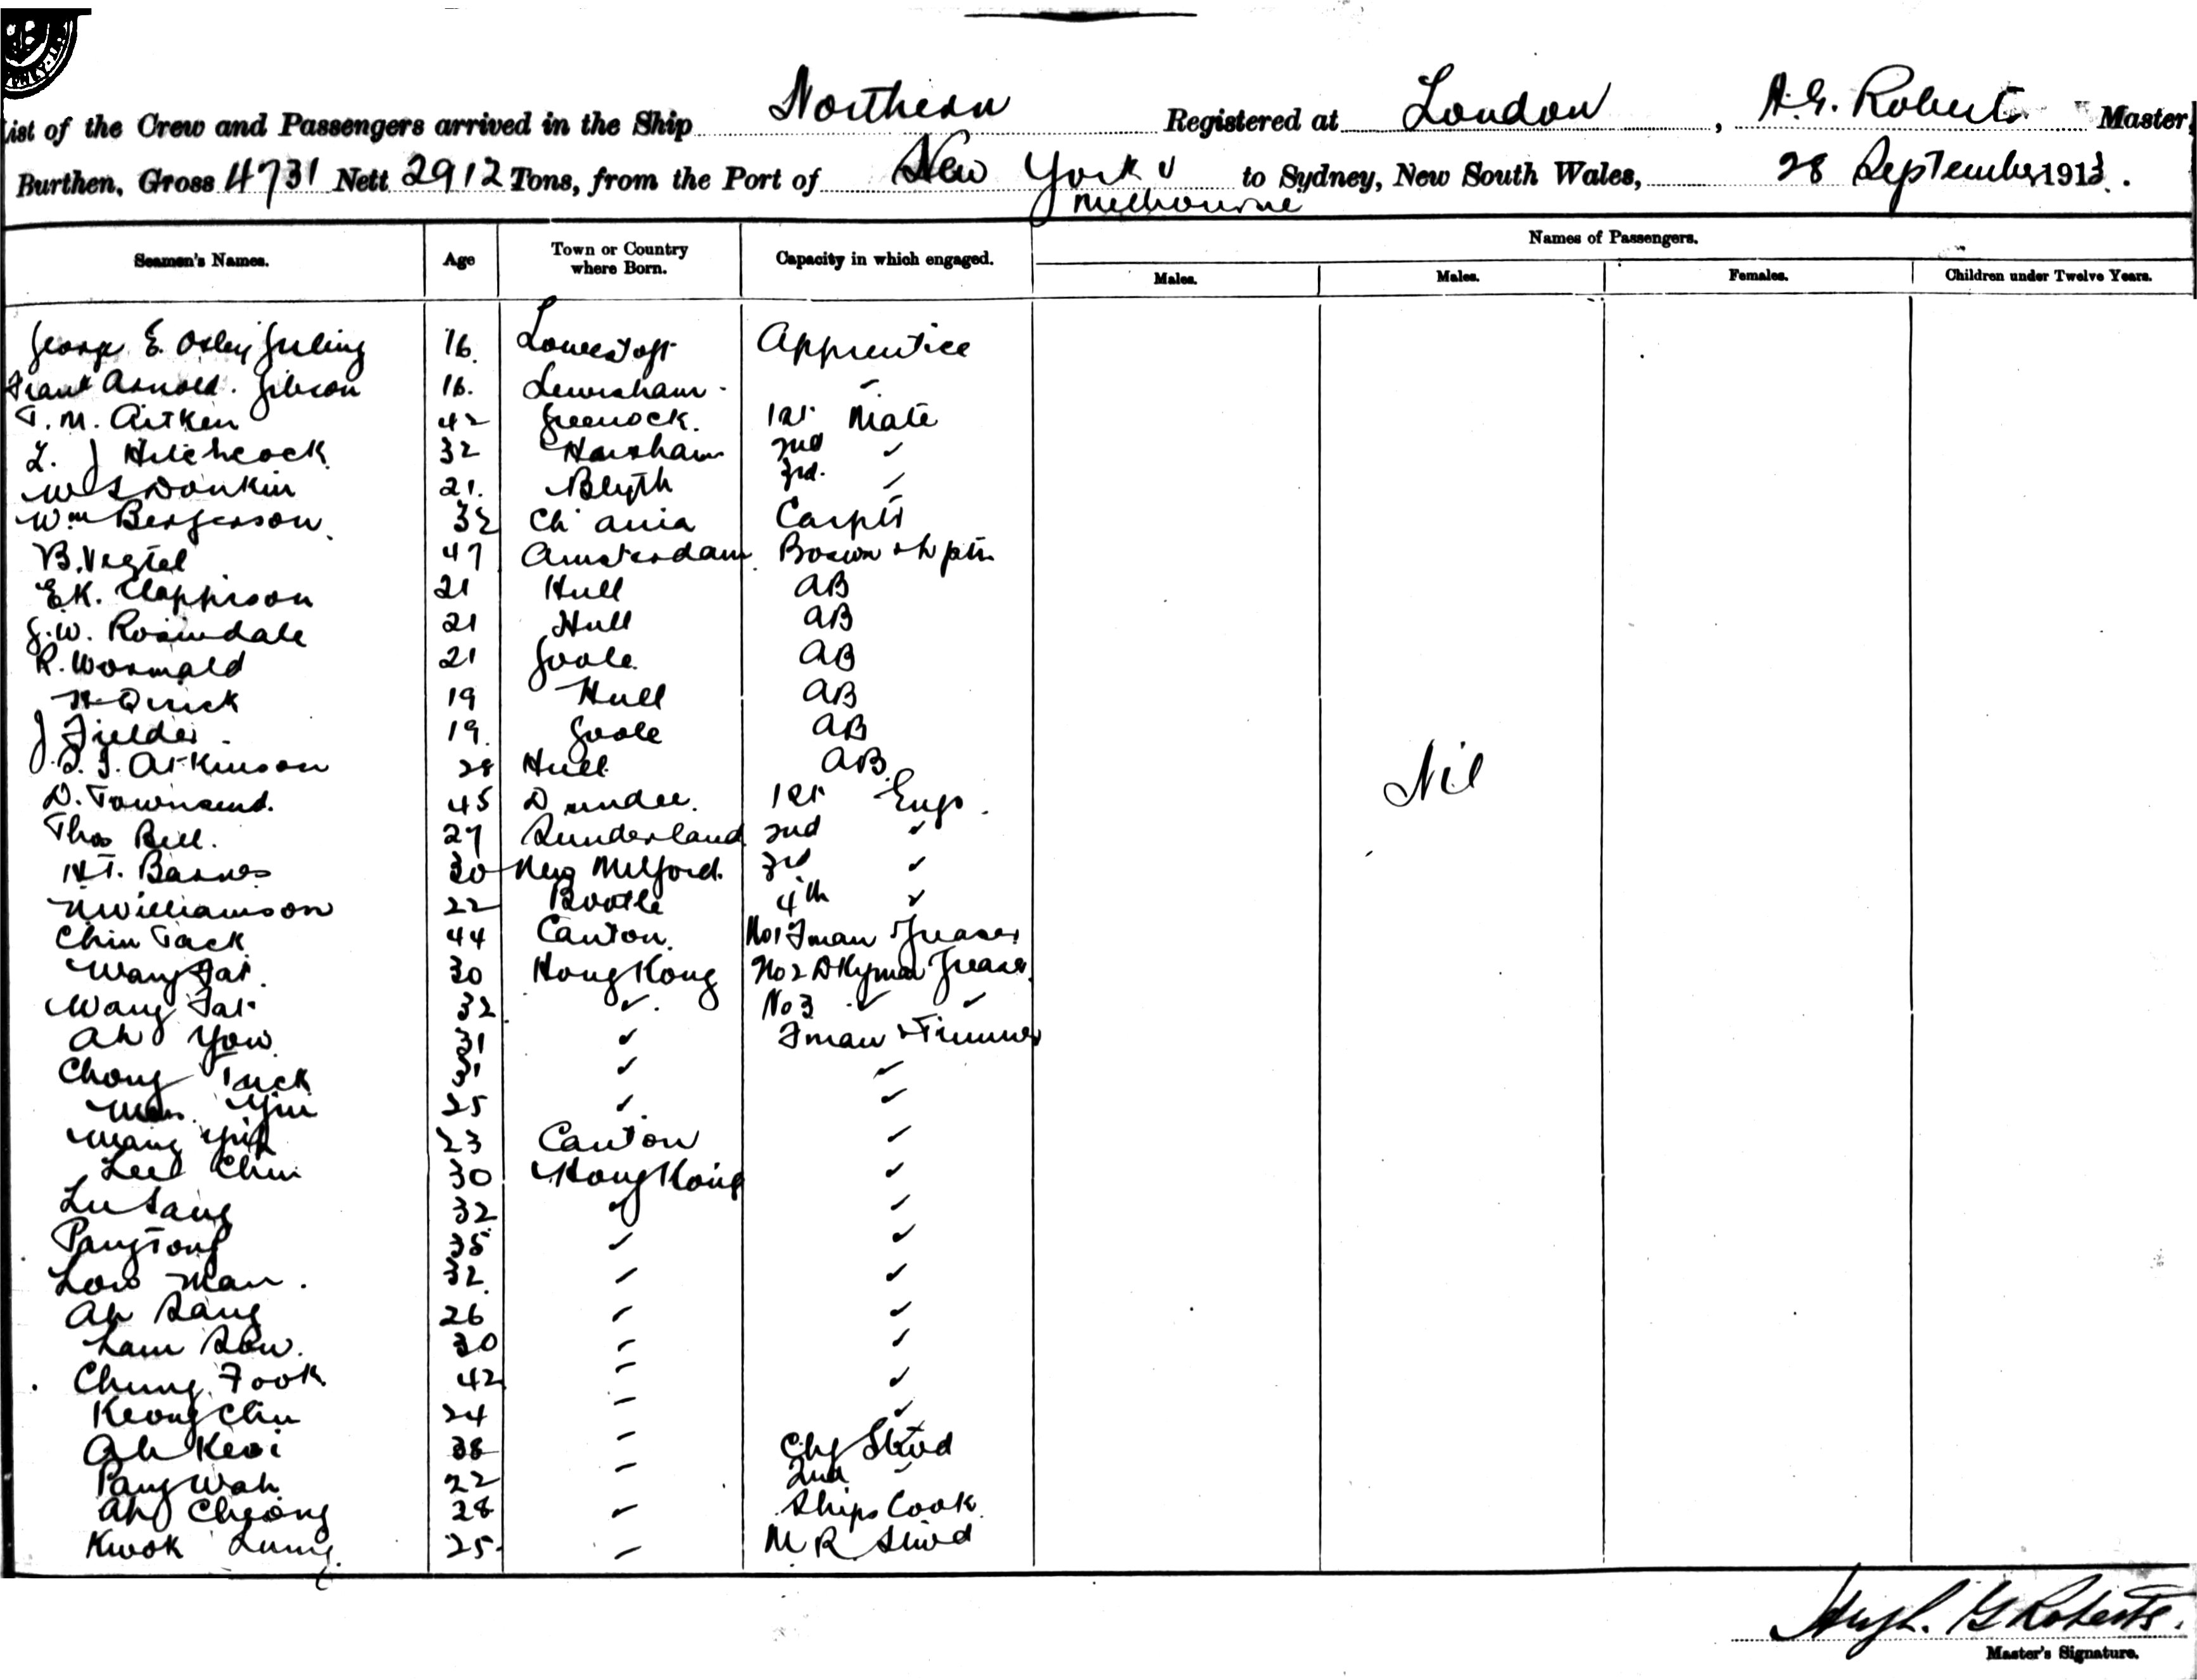 List of the Crew and Passengers arrived in the Ship Northern Registered at London, H.G. Roberts Master,
Burthen, Gross 4731 Nett 2912 Tons, from the Port of New York & to Sydney, New South Wales, 28 September 1913.
Melbourne
Names of Passengers.
Seamen's Names. Age Town or Country where Born. Capacity in which engaged. Males. Males. Females. Children under Twelve Years.
George E. Oxley Girling 16. Lowestoft Apprentice
Frank Arnold. Gibson 16. Lewisham "
T. M. Aitken 42 Greenock. 1st Mate
L. J Hitchcock 32 Horsham 2nd "
W S Donkin 21. Blyth 3rd. "
Wm Bergerson 32 Ch'ania Carptr
B. Vegtel 47 Amsterdam Boswn &
E.K. Clappison 21 Hull AB
G.W. Rosindale 21 Hull AB
R. Wormald 21 Goole AB
H Quick 19 Hull AB
J Fielder 19. Goole AB
Atkinson 28 Hull AB
D. Townsend. 45 Dundee. 1st Engr.
Thos Bell. 27 Sunderland 2nd "
H.T. Barnes 30 New Milford. 3rd "
N Williamson 22 Bootle 4th "
Chin Tack 44 Canton. No1 Fman Greaser
Wang Fat. 30 Hong Kong No2 Dkyman Greaser
Wang Fat 32 " No3 " "
Ah You 31 " Fman & Trimmer
Chong Tuck 31 " "
Yin 25 " "
Wang Yik 23 Canton "
Lee Chin 30 Hong Kong "
Lu Sang 32 " "
Pang Tong 35 " "
Low Man. 32. " "
Ah Sang 26 " "
Lam Sow. 30 " "
Chung Fook 42 " "
Keong Chu 24 " "
Ah Keoi 38 " Chf Stwd
Pang Wah 22 " 2nd "
Ah Cheong 28 " Ships Cook
Kwok Lung. 25. " M R Stwd
Nil
Hugh. G Roberts.
Master's Signature.